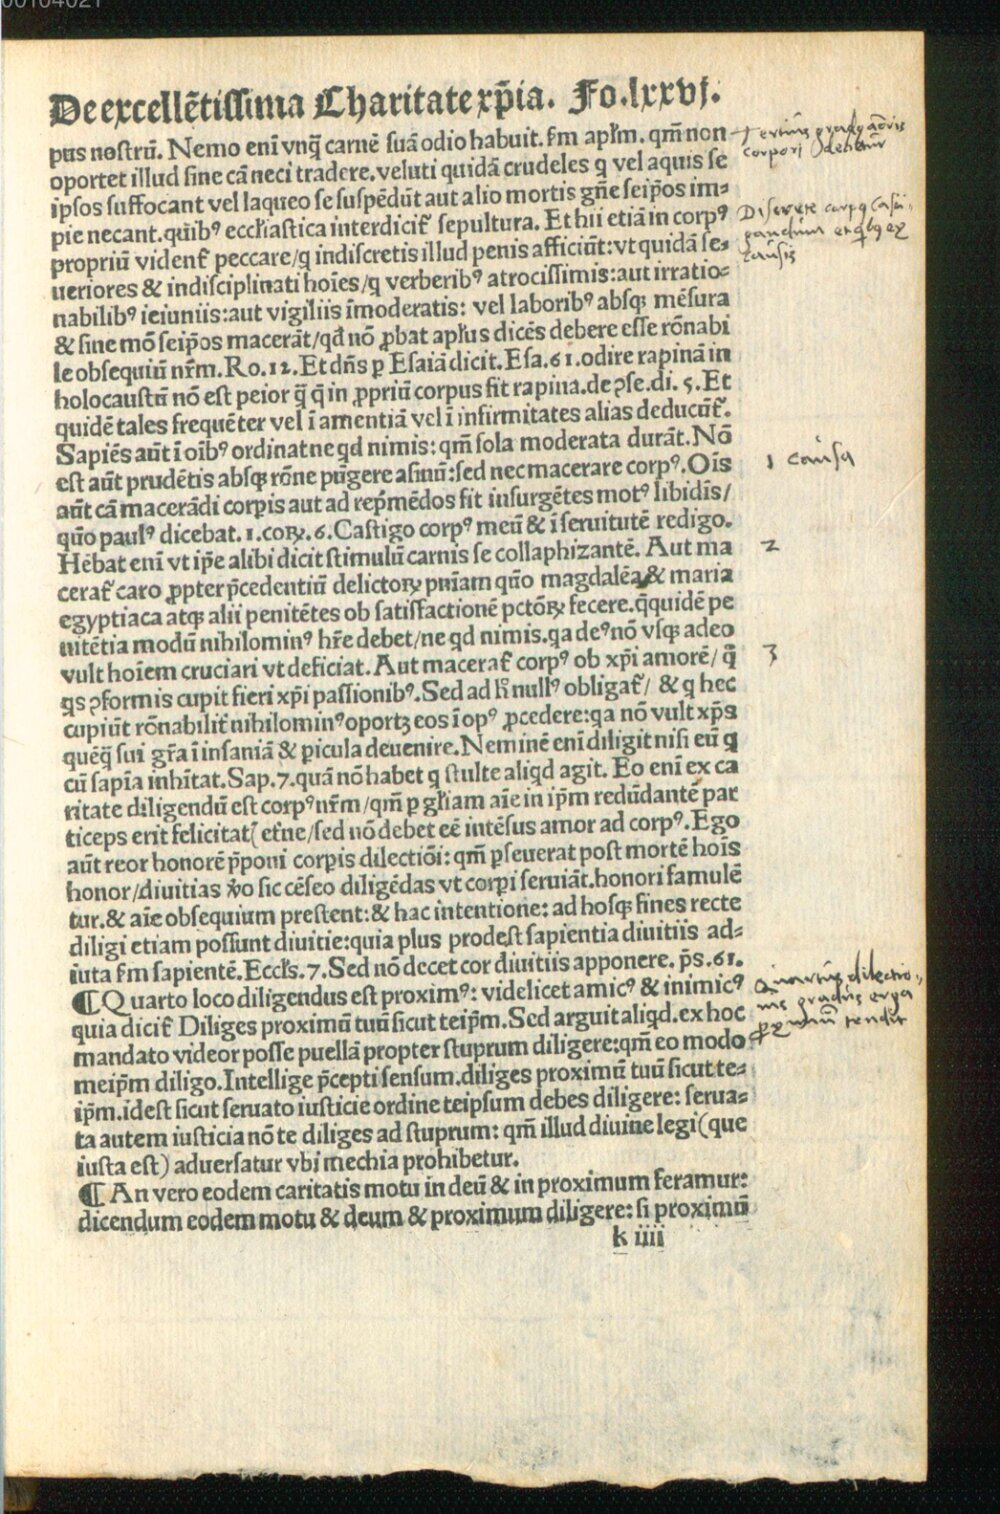 De excellētissima Charitate xp̄ia. Fo.lxxvj.
pus nostrū. Nemo eni̅ vnq̄ carnē suā odio habuit. s̄m apl̄m. qm̄ non
oportet illud sine cā neci tradere. veluti quidā crudeles q vel aquis se
ipsos suffocant vel laqueo se suspēdūt aut alio mortis gn̄e seip̄os im⸗
pie necant. qui̅bꝰ eccl̄iastica interdicit̄ sepultura. Et hii etiā in corpꝰ
propriū vident̄ peccare/q indiscretis illud penis afficiūt: vt quidā se⸗
ueriores & indisciplinati hoi̅es/q verberibꝰ atrocissimis: aut irratio⸗
nabilibꝰ ieiuniis: aut vigiliis i̅moderatis: vel laboribꝰ absq; mēsura
& sine mō seip̄os macerāt/qd̄ nō ꝓbat apl̄us dicēs debere esse rōnabi
le obsequiū nr̄m. Ro.12. Et dn̄s ꝑ Esaiā dicit. Esa.61. odire rapinā in
holocaustū nō est peior q̄ q̄ in ꝓpriū corpus fit rapina. de ꝯse. di. 5. Et
quidē tales frequēter vel i̅ amentiā vel i̅ infirmitates alias deducūt̄.
Sapiēs aūt i̅ oi̅bꝰ ordinat ne qd nimis: qm̄ sola moderata durāt. Nō
est aūt prudētis absq; rōne pūgere asinū: sed nec macerare corpꝰ. Oi̅s
aūt cā macerādi corꝑis aut ad rep̄mēdos fit insurgētes motꝰ libidi̅s/
quō paulꝰ dicebat. 1. corꝝ. 6. Castigo corpꝰ meū & i̅ seruitutē redigo.
Hēbat eni̅ vt ip̄e alibi dicit stimulū carnis se collaphizantē. Aut ma
cerat̄ caro ꝓpter p̄cedentiū delictoꝝ pn̄iam quō magdalēa & maria
egyptiaca atq; alii penitētes ob satisfactionē pctōꝝ fecere. q̄ quidē pe
nitētia modū nihilominꝰ hr̄e debet/ne qd nimis. qa deꝰ nō vsq; adeo
vult hoi̅em cruciari vt deficiat. Aut macerat̄ corpꝰ ob xp̄i amorē/ q̄
qs ꝯformis cupit fieri xp̄i passionibꝰ. Sed ad h̄ nullꝰ obligat̄/ & q hec
cupiūt rōnabilit̄ nihilominꝰ oportꝫ eos i̅ opꝰ ꝓcedere: qa nō vult xp̄s
quēq̄ sui gr̄a i̅ insaniā & ꝑicula deuenire. Neminē eni̅ diligit nisi eū q
cū sapi̅a inhi̅tat. Sap. 7. quā nō habet q stulte aliqd agit. Eo eni̅ ex ca
ritate diligendū est corpꝰ nr̄m/qm̄ ꝑ gl̄iam ai̅e in ip̄m redūdantē par
ticeps erit felicitatꝭ et̄ne/sed nō debet eē intēsus amor ad corpꝰ. Ego
aūt reor honorē p̄poni corꝑis dilectiōi: qm̄ ꝑseuerat post mortē hoi̅s
honor/diuitias v̄o sic cēseo diligēdas vt corꝑi seruiāt. honori famulē
tur. & ai̅e obsequium prestent: & hac intentione: ad hosq; fines recte
diligi etiam possunt diuitie: quia plus prodest sapientia diuitiis ad⸗
iuta s̄m sapientē. Eccl̄s. 7. Sed nō decet cor diuitiis apponere. p̄s. 61.
¶ Quarto loco diligendus est proximꝰ: videlicet amicꝰ & inimicꝰ
quia dicit̄ Diliges proximū tuū sicut teip̄m. Sed arguit aliqd. ex hoc
mandato videor posse puellā propter stuprum diligere: qm̄ eo modo
meip̄m diligo. Intellige p̄cepti sensum. diliges proximū tuū sicut te⸗
ip̄m. idest sicut seruato iusticie ordine teipsum debes diligere: serua⸗
ta autem iusticia nō te diliges ad stuprum: qm̄ illud diuine legi (que
iusta est) aduersatur vbi mechia prohibetur.
¶ An vero eodem caritatis motu in deū & in proximum feramur:
dicendum eodem motu & deum & proximum diligere: si proximū
k iiii
Tertius gradus
corpori
Discrete
causis
1 causa
2
3
Quartus dilectio⸗
nis gradus erga
tendit